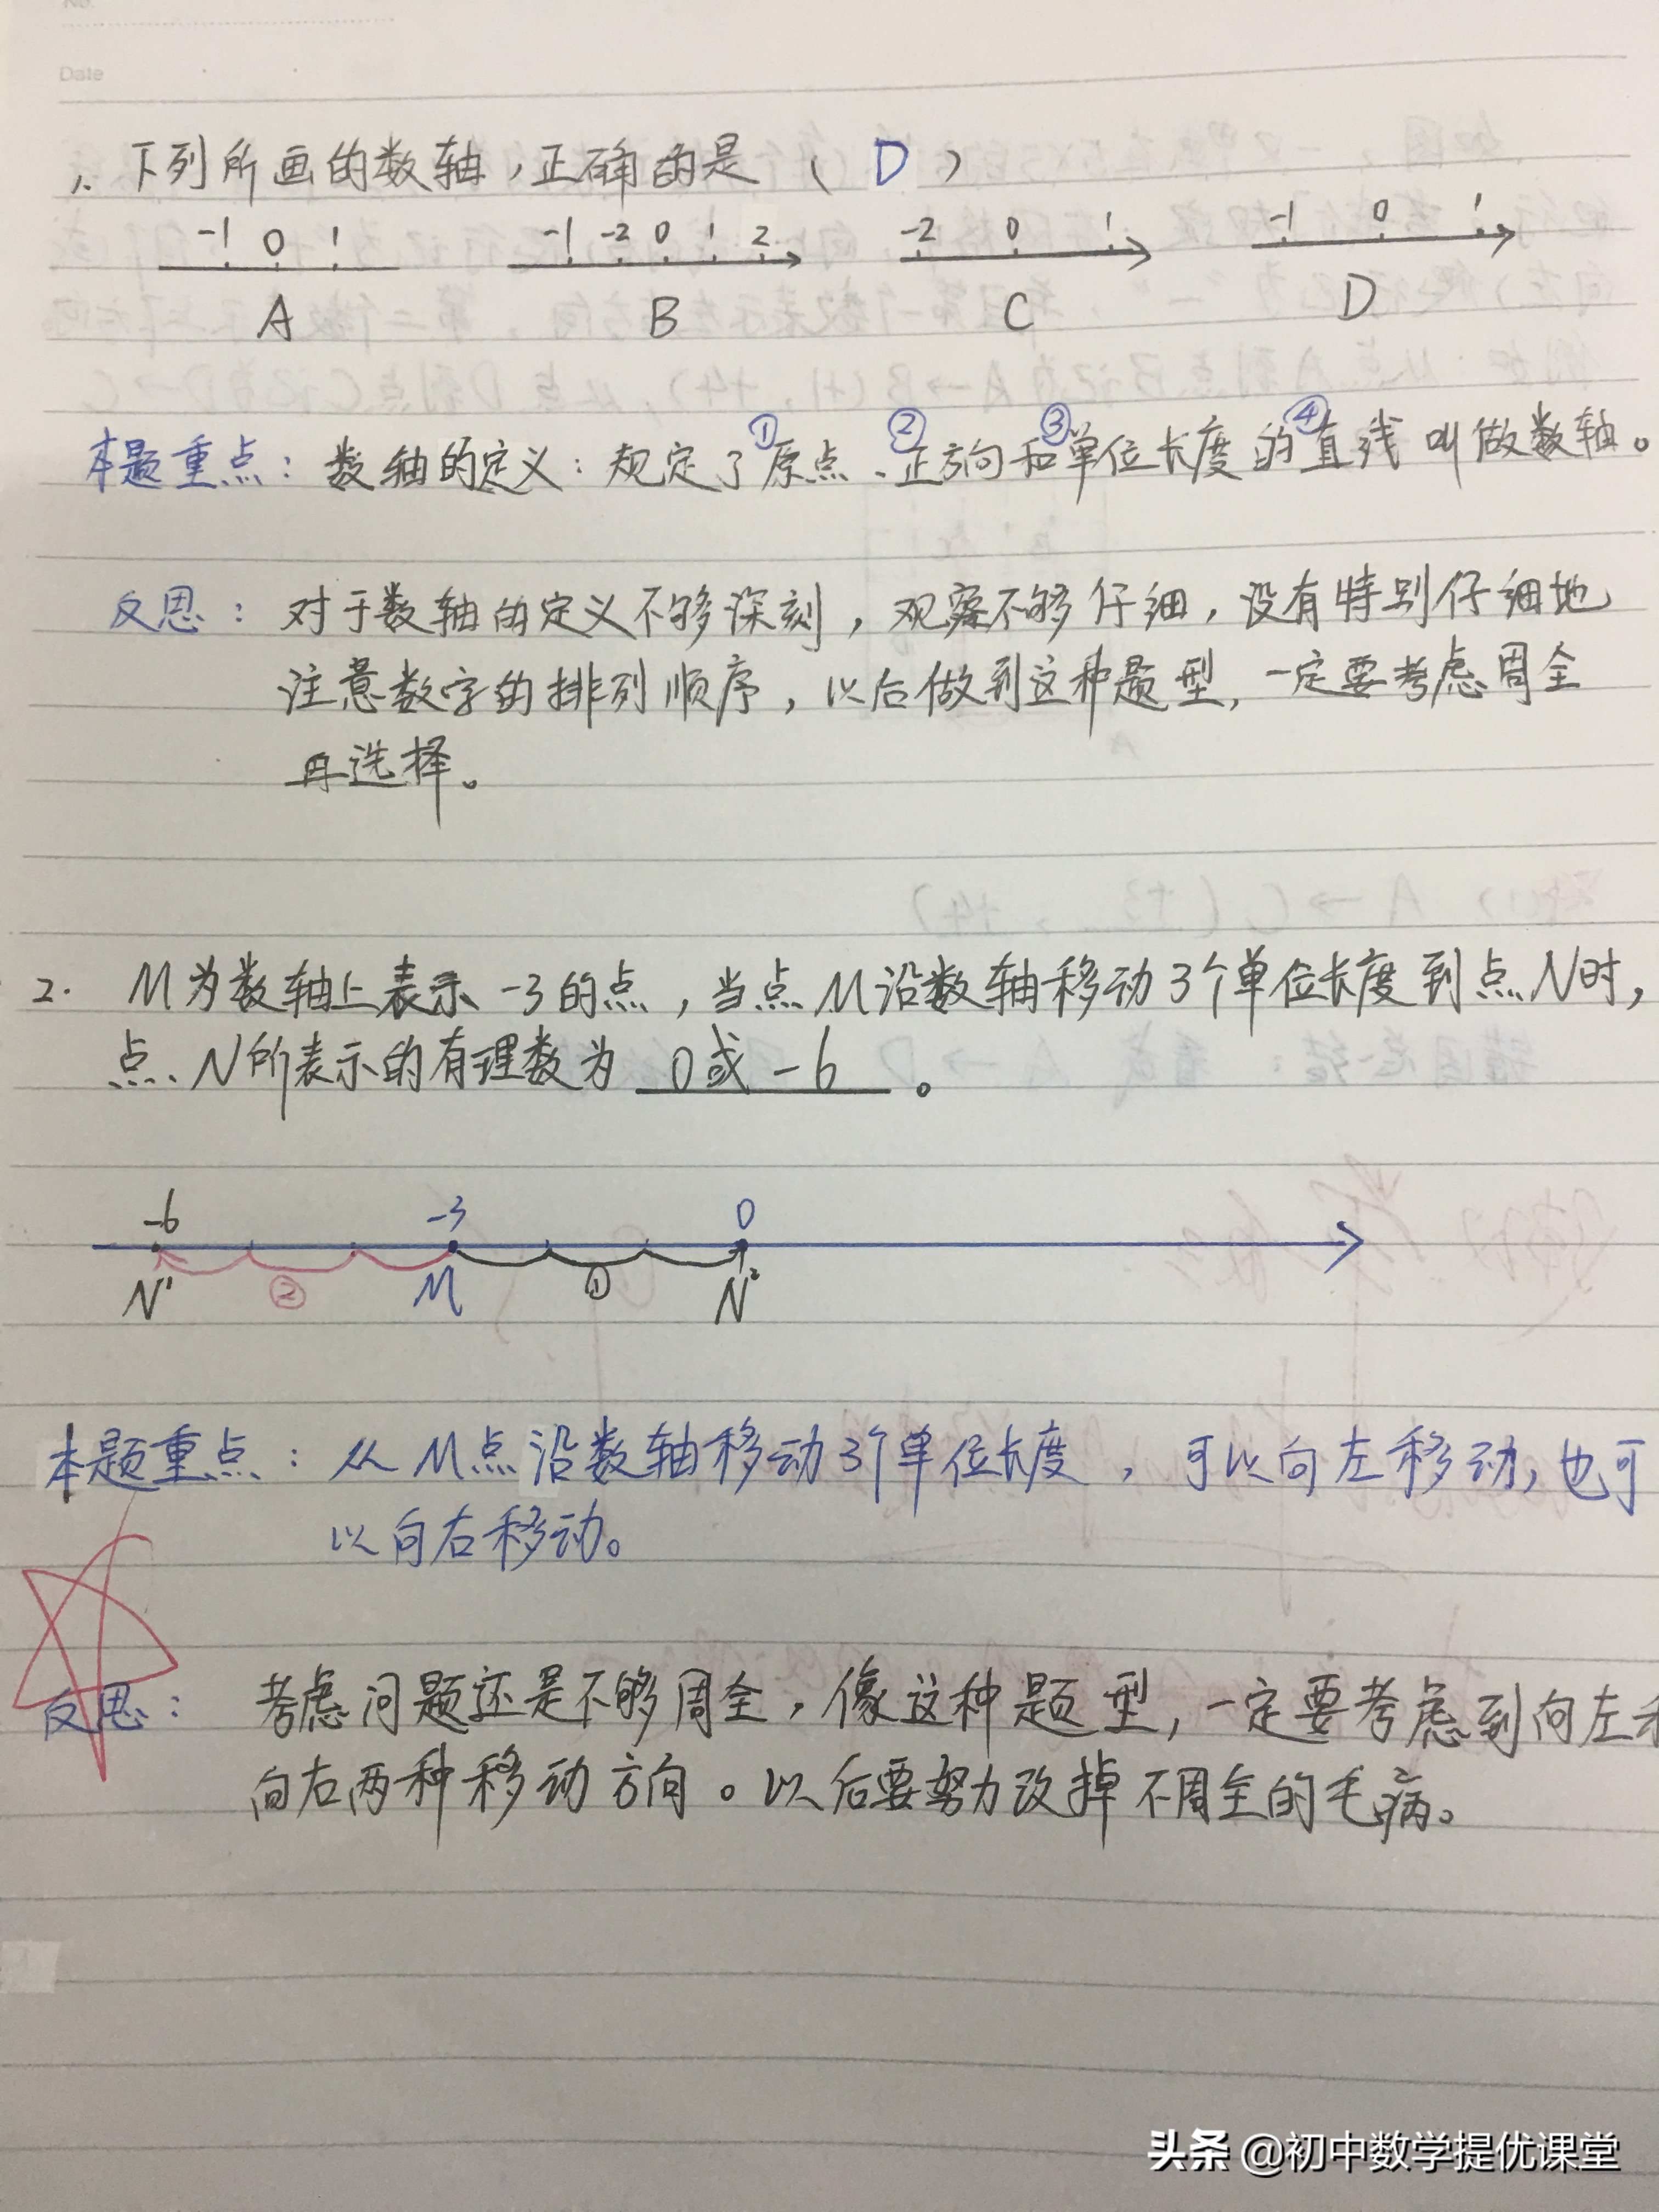 No.
Date
1. 下列所画的数轴，正确的是（ D ）
-1 0 1 -1 -2 0 1 2 -2 0 1 -1 0 1
A B C D
① ② ③ ④
本题重点：数轴的定义：规定了原点、正方向和单位长度的直线叫做数轴。
反思：对于数轴的定义不够深刻，观察不够仔细，没有特别仔细地
注意数字的排列顺序，以后做到这种题型，一定要考虑周全
再选择。
2. M为数轴上表示-3的点，当点M沿数轴移动3个单位长度到点N时，
点N所表示的有理数为 0或-6 。
-6 -3 0
N¹ ② M ① N²
本题重点：从M点沿数轴移动3个单位长度，可以向左移动，也可
以向右移动。
反思：考虑问题还是不够周全，像这种题型，一定要考虑到向左
向右两种移动方向。以后要努力改掉不周全的毛病。
头条 @初中数学提优课堂